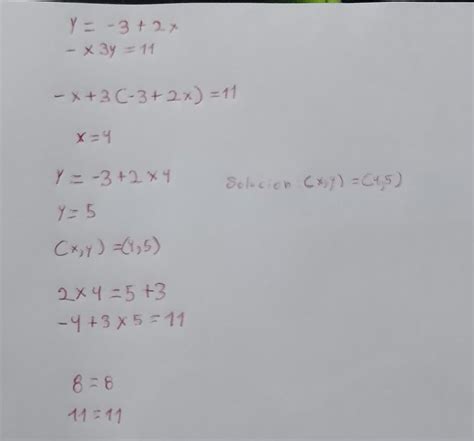 y = -3 + 2x
- x 3y = 11
- x + 3 (-3 + 2x) = 11
x = 4
y = -3 + 2 x 4
Solucion (x,y) = (4,5)
y = 5
(x,y) = (4,5)
2 x 4 = 5 + 3
-4 + 3 x 5 = 11
8 = 8
11 = 11